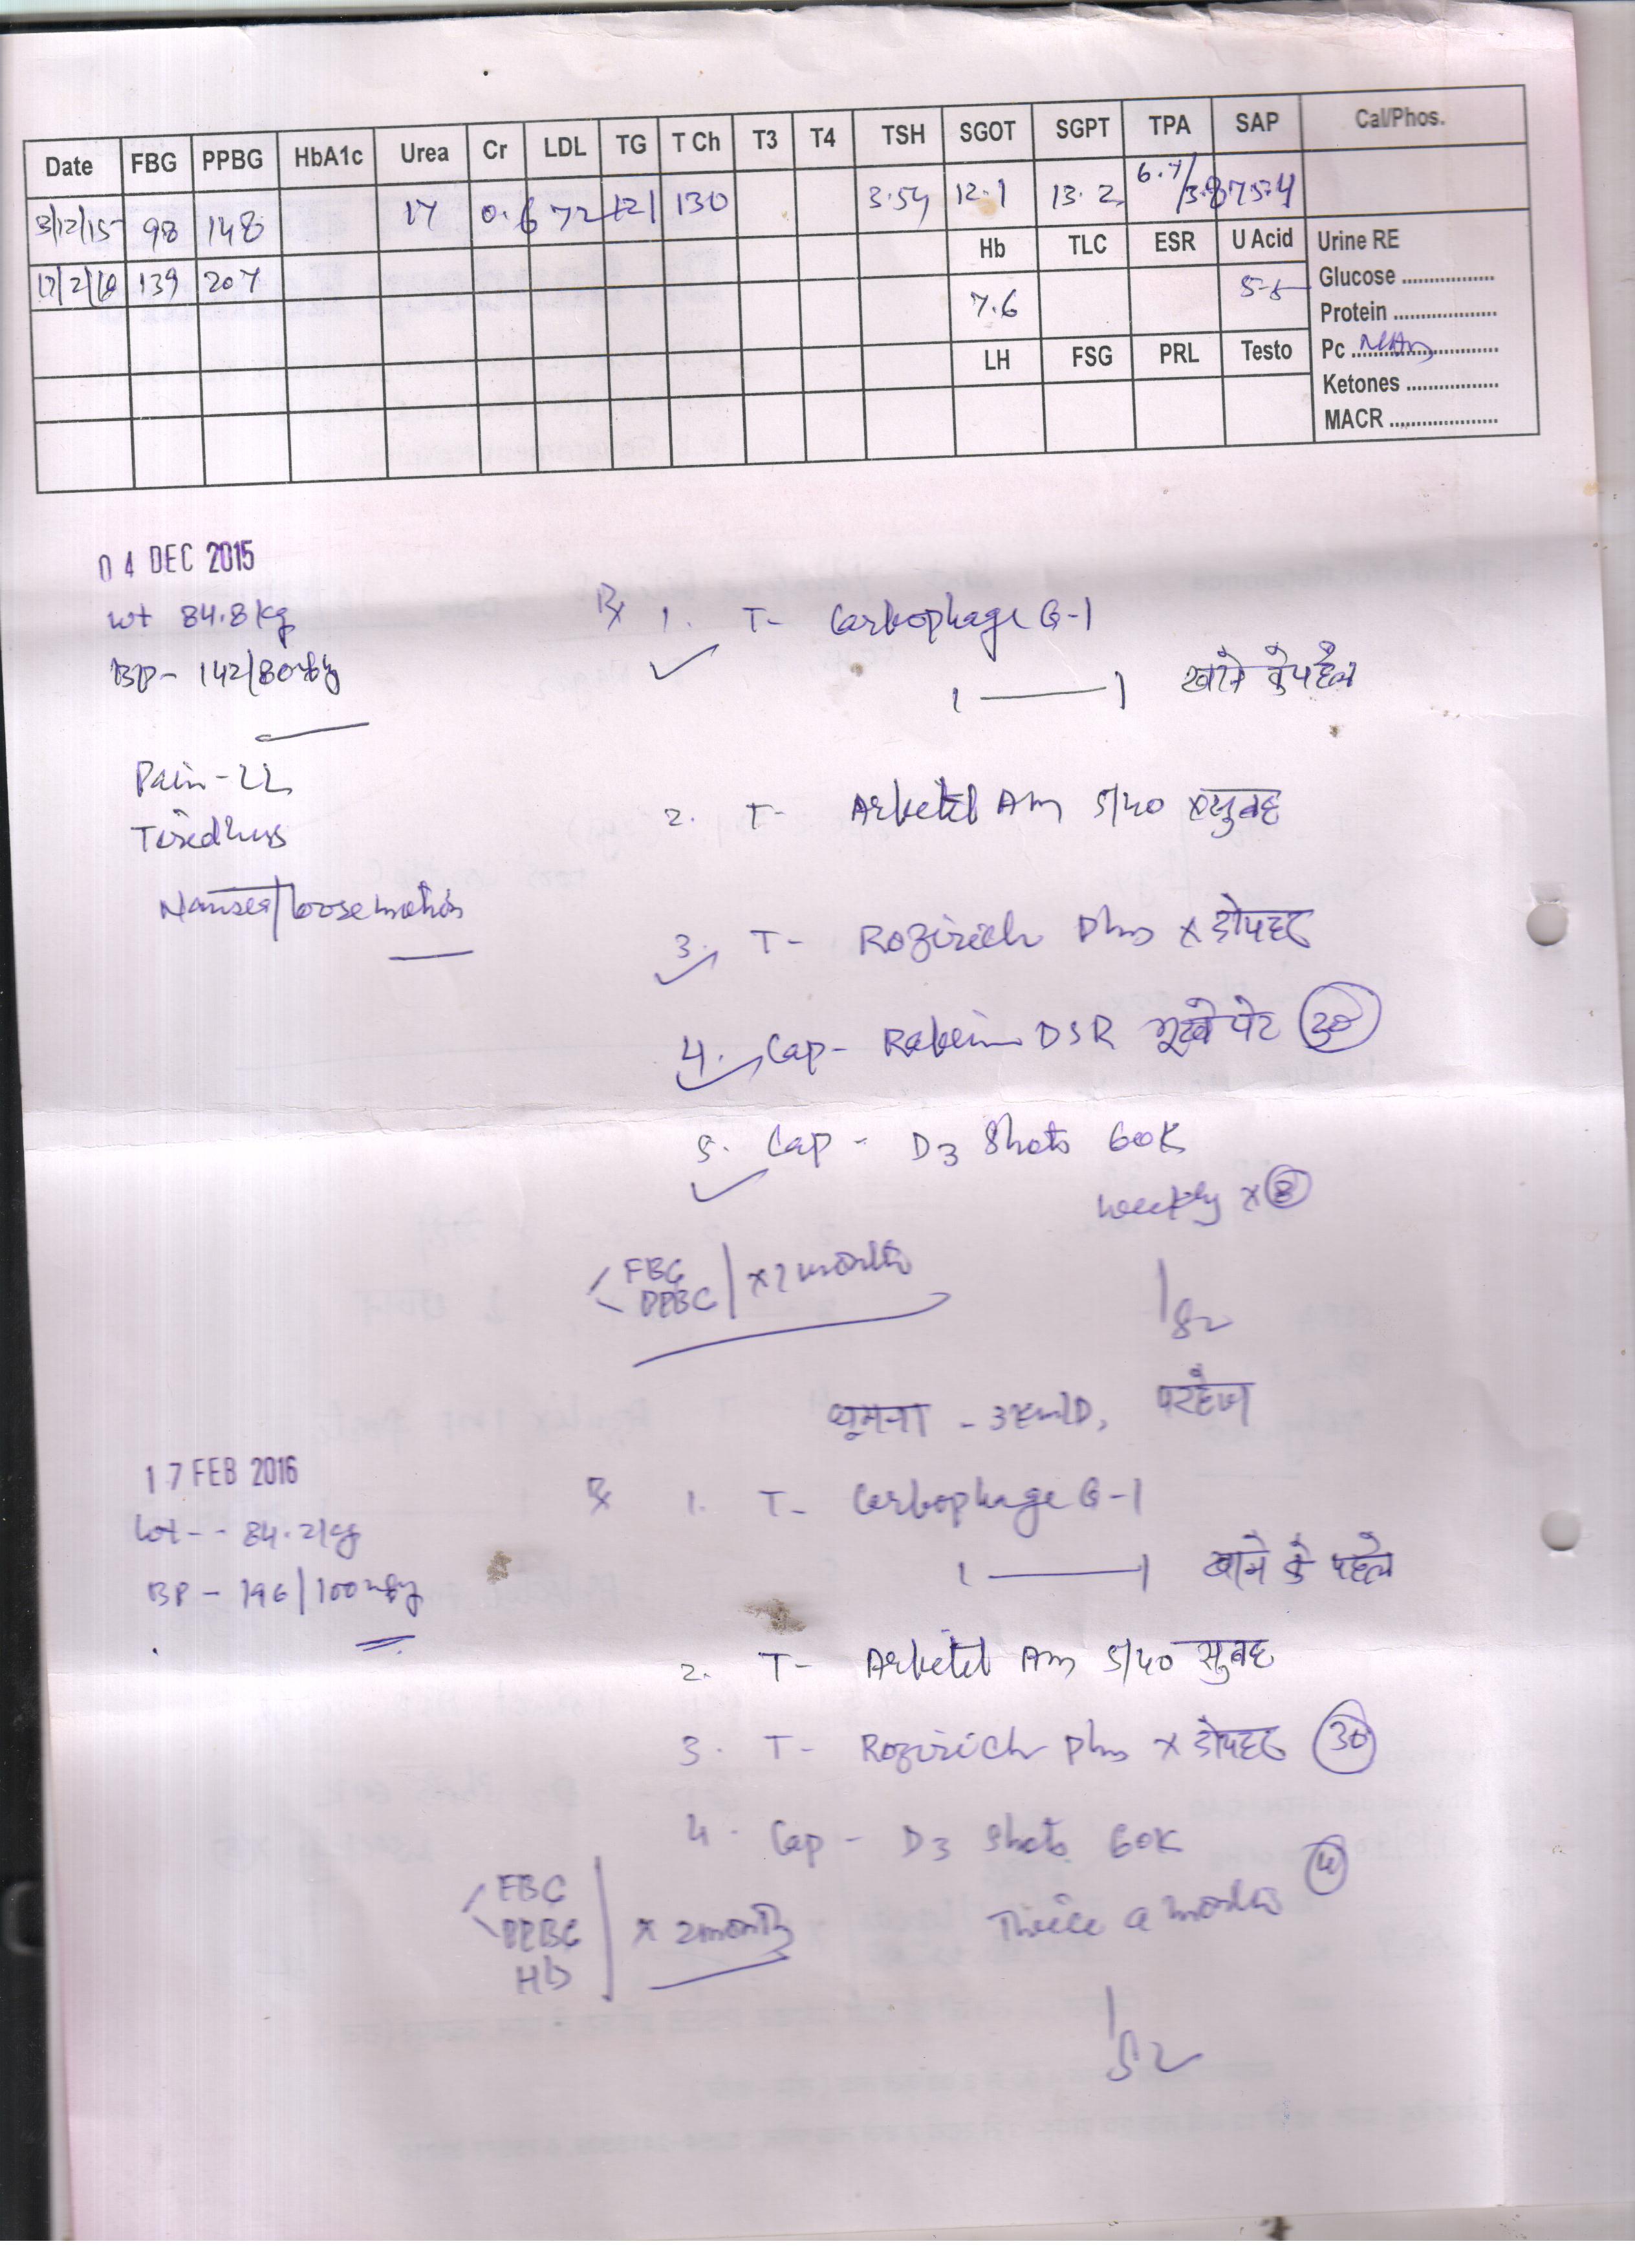 Date FBG PPBG HbA1c Urea Cr LDL TG T Ch T3 T4 TSH SGOT SGPT TPA SAP Cal/Phos.
3/12/15 98 148 17 0.6 72 121 130 3.54 12.1 13.2 6.7/3.8 75.4
Hb TLC ESR U Acid Urine RE
17/2/16 139 207
7.6
Glucose
Protein
LH FSG PRL Testo Pc
Ketones
MACR
04 DEC 2015
wt 84.8kg
BP - 142/80
Pain - LL
Tiredness
Nausea/loose motion
Rx 1. T- Carbophage G-1
1 — 1 खाने के पहले
2. T- Arbitel Am 5/40 x सुबह
3. T- Rozirich Plus x दोपहर
4. Cap- DSR भूखे पेट 30
5. Cap - D3 Shots 60K
weekly x 8
FBG
PPBG x 2 months
घूमना - 3km/D, परहेज
17 FEB 2016
wt -- 84.2kg
BP - 196/100
Rx 1. T- Carbophage G-1
1 — 1 खाने के पहले
2. T- Arbitel Am 5/40 सुबह
3. T- Rozirich Plus x दोपहर 30
4. Cap - D3 Shots 60K
Twice a month 4
FBG
PPBG x 2 month
Hb